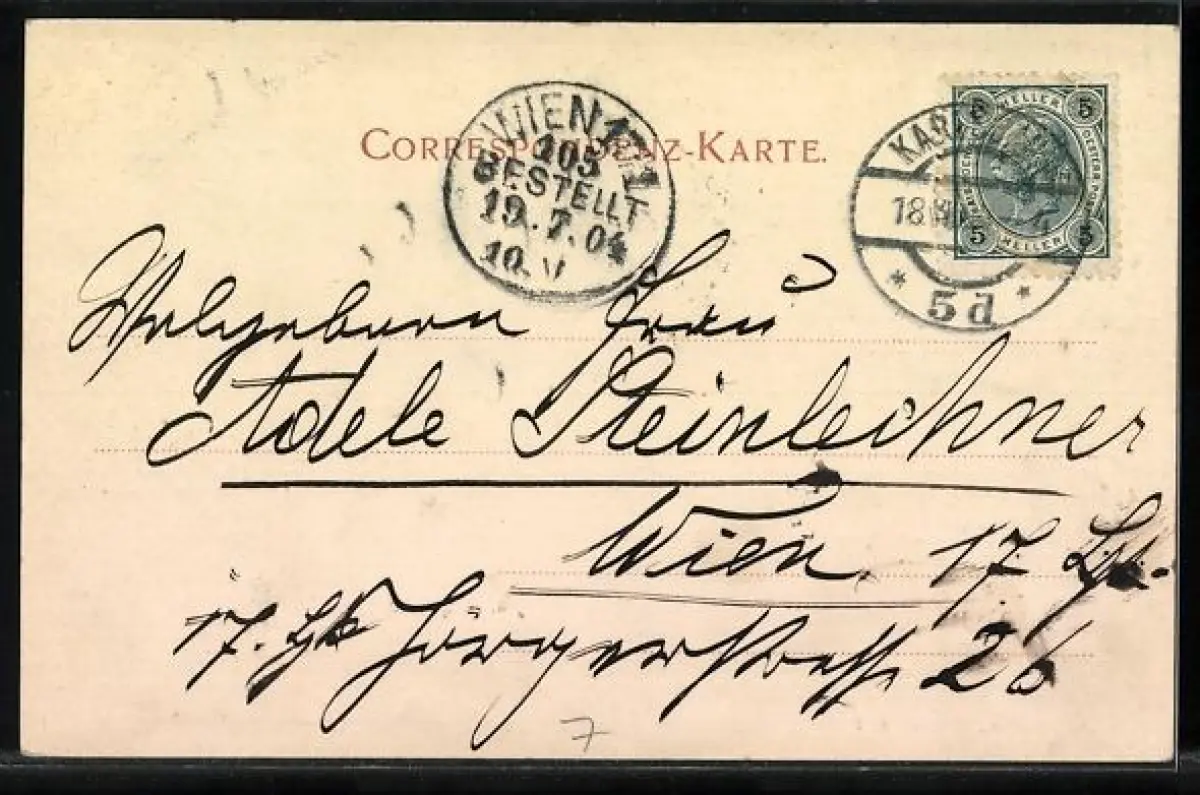 CORRESPONDENZ-KARTE.
WIEN 17/1
105
BESTELLT
19.7.04
10.V
KAR
18
5d
5 HELLER 5
5 HELLER 5
Wolgeboren Frau
Adele Steinlechner
Wien, 17.
17. Jörgerstrasse 26
7